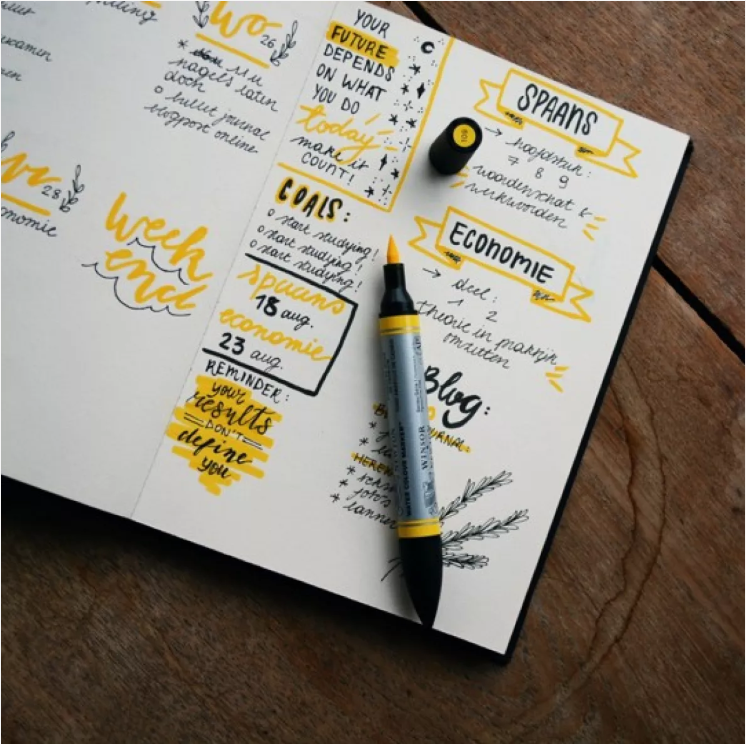 wo
26
nagels laten
doen
o bullet journal
blogpost online
examen
28
week
end
YOUR
FUTURE
DEPENDS
ON WHAT
YOU DO
today
make it
COUNT!
GOALS:
o start studying!
o start studying!
o start studying!
spaans
18 aug.
economie
23 aug.
REMINDER:
your
results
DON'T
define
you
SPAANS
→ hoofdstuk:
7 8 9
woordenschat &
werkwoorden
ECONOMIE
→ deel:
1 2
theorie in praktijk
omzetten
Blog:
WATER COLOUR MARKER
WINSOR